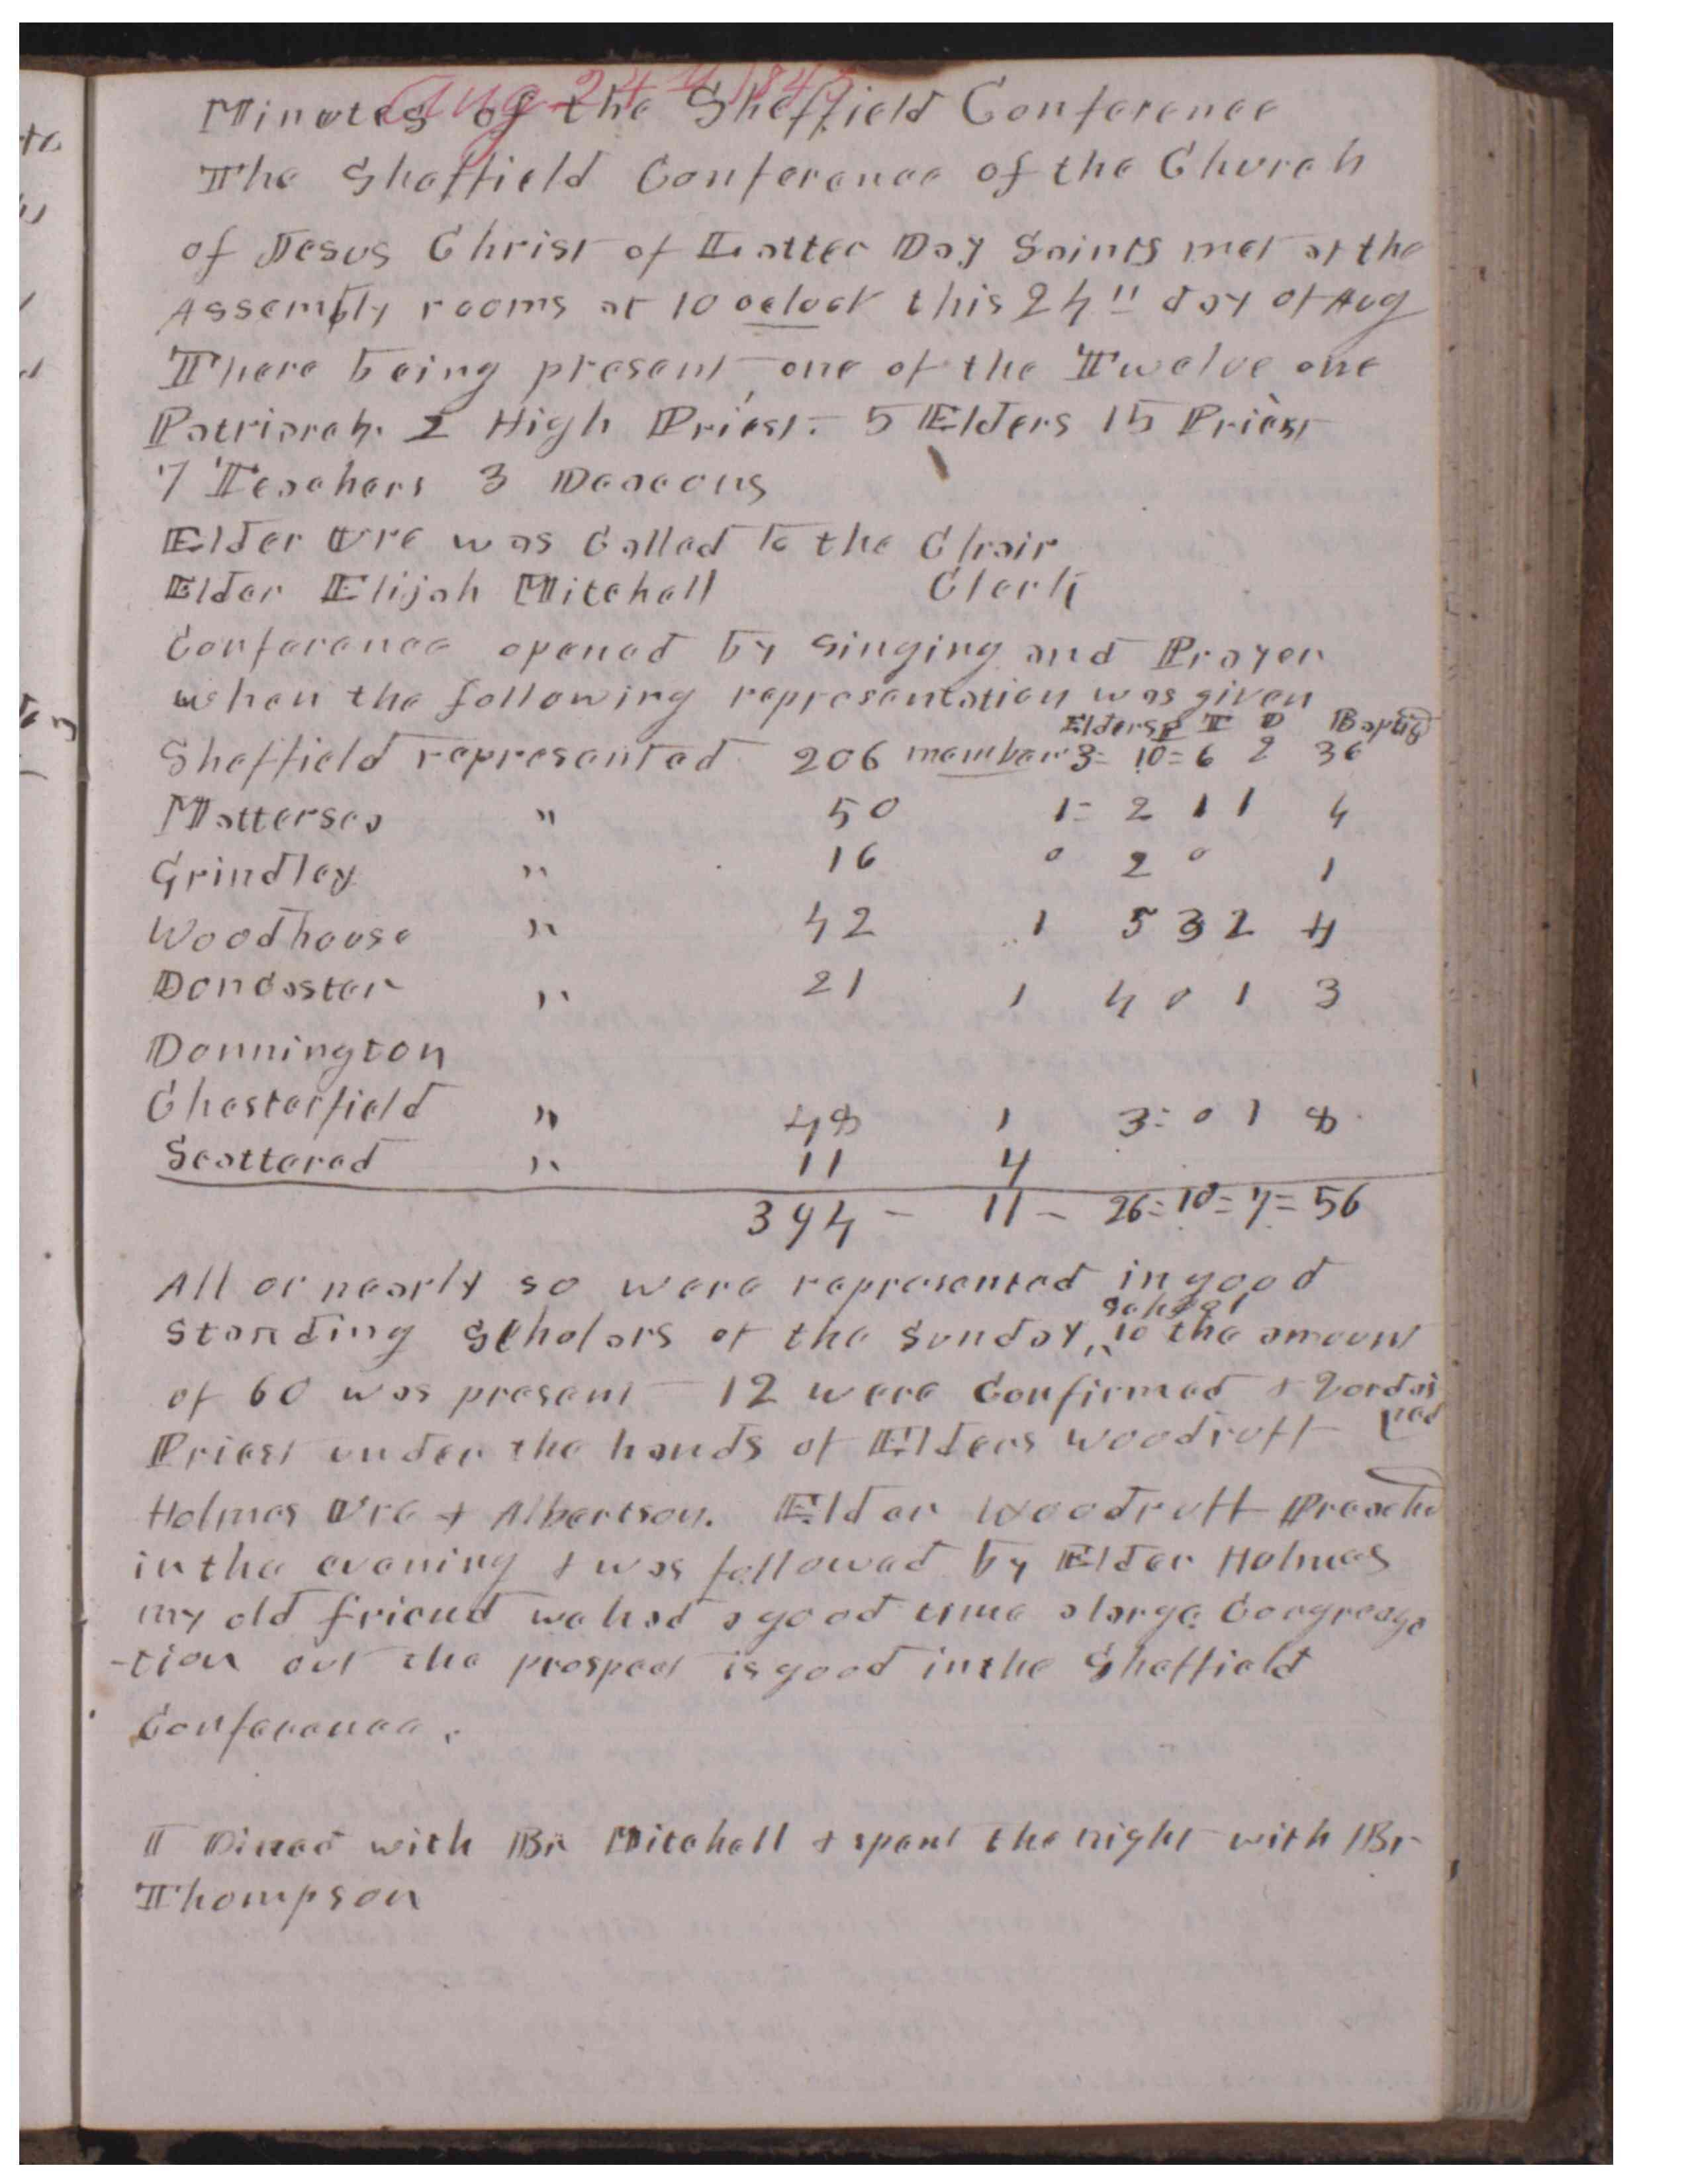 Aug 24th 1845
Minutes of the Sheffield Conference
The Sheffield Conference of the Church
of Jesus Christ of Latter Day Saints met at the
Assembly rooms at 10 oclock this 24" day of Aug
There being present one of the Twelve one
Patriarch. 2 High Priest. 5 Elders 15 Priest
7 Teachers 3 Deacons
Elder Ure was Called to the Chair
Elder Elijah Mitchell Clerk
Conference opened by singing and Prayer
when the following representation was given
Elders P T D Baptiz
Sheffield represented 206 member 3= 10= 6 2 36
Mattersea " 50 1= 2 1 1 4
Grindley " 16 0 2 0 1
Woodhouse " 42 1 5 3 2 4
Doncaster " 21 1 4 0 1 3
Donnington
Chesterfield " 48 1 3= 0 1 8
Scattered " 11 4
394 - 11 - 26= 10= 7= 56
All or nearly so were represented in good
school
standing Scholars of the Sunday, to the amount
of 60 was present 12 were Confirmed + 2 ordai
ned
Priest under the hands of Elders Woodruff
Holmes Ure + Albertson. Elder Woodruff Preachd
in the evening + was followed by Elder Holmes
my old friend we had a good time a large Congreaga
-tion out the prospect is good in the Sheffield
Conference.
I Dined with Br Mitchell + spent the night with Br
Thompson